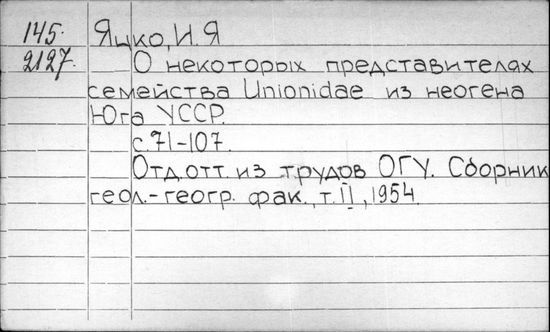 145. Яцко, И. Я
2127. О некоторых представителях
семейства Unionidae из неогена
Юга УССР.
с. 71-107.
Отд. отт. из трудов ОГУ. Сборник
геол.-геогр. фак., т. II, 1954.